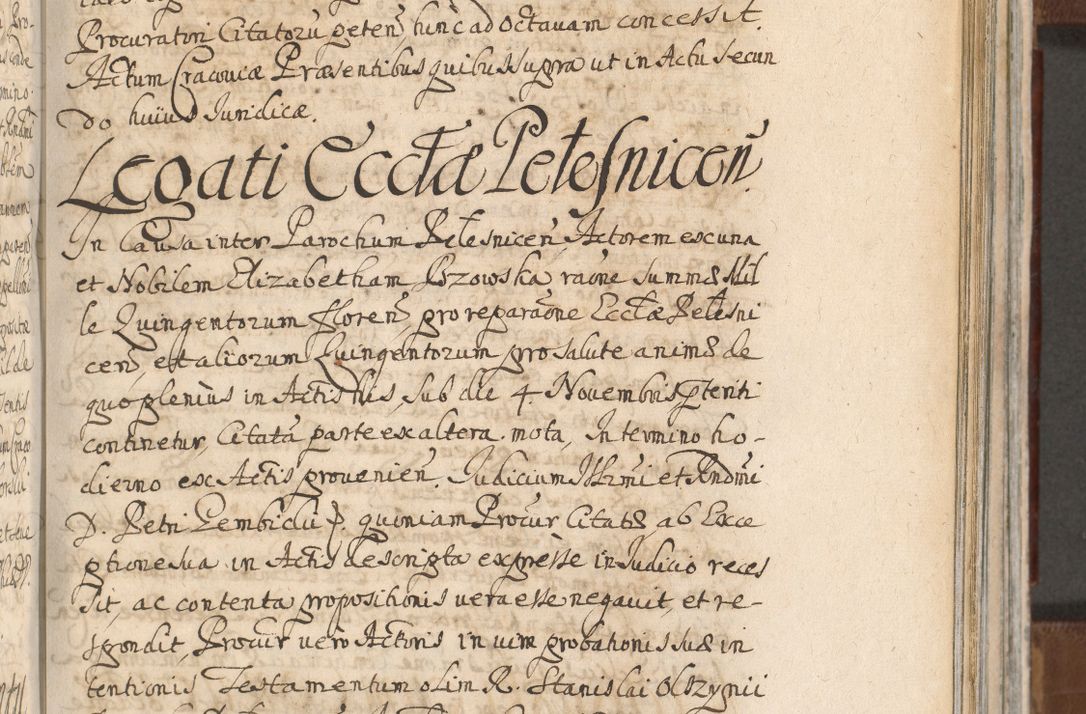 Procuratori Citatorũ peteñ, hunc ad Octavam concessit.
Actum Cracoviæ Præsentibus quibus supra ut in Actu secun
do huius Juridicæ.
Legati Ecctæ Pelesniceñ.
In Causa inter Parochum Pelesniceñ Actorem ex una
et Nobilem Elizabetham Rzowska, raõne summæ Mil
le Quingentorum floreñ, pro reparaõne Ecctæ Pelesni
ceñ, et aliorum Quingentorum pro salute animæ de
quo plenius in Actis his, sub die 4 Novembris pteriti
continetur, Citatã parte ex altera. mota, In termino ho-
dierno ex Actis provenieñ. Judicium Illrmi et Rndmi
D. Petri Gembicki P. quoniam Procur Citatæ ab Exce
ptione sua in Actis descripta expresse in Judicio reces
sit, ac contenta propositionis vera esse negavit, et re-
spondit, Procur vero Actoris in vim probationis suæ in
tentionis Testamentum olim R. Stanislai Olszynii